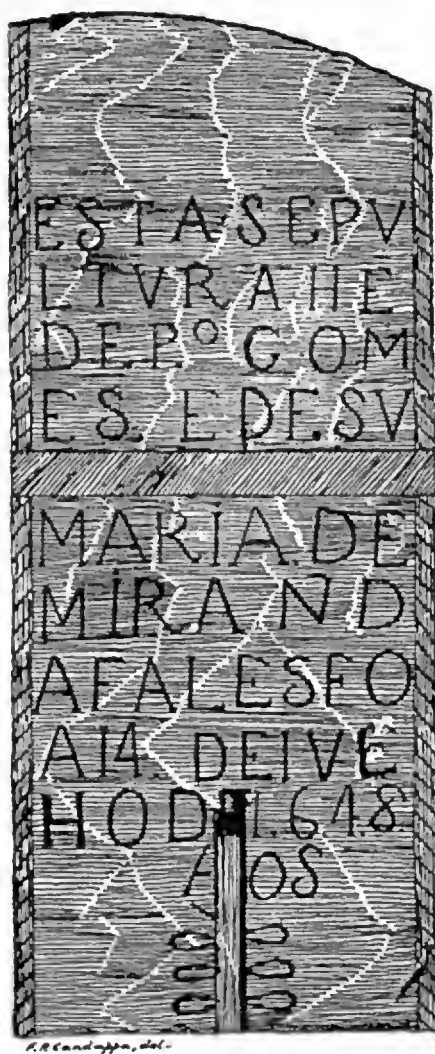 ESTA SEPV
LTVRA HE
DE. Pº GOM
ES. E DE. SV
MARIA. DE
MIRAND
A FALESEO
A 14. DE IVE
HO D 1.6.4.8.
A OS